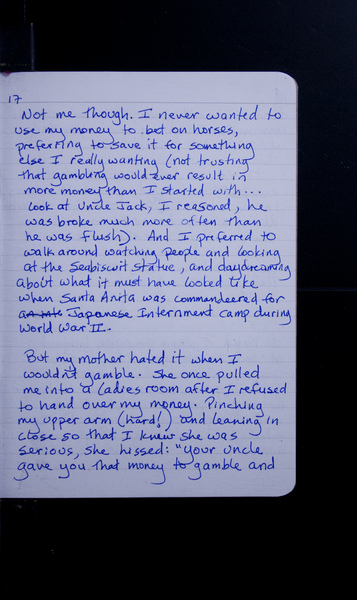 17
Not me though. I never wanted to
use my money to bet on horses,
preferring to save it for something
else I really wanting (not trusting
that gambling would ever result in
more money than I started with...
Look at Uncle Jack, I reasoned, he
was broke much more often than
he was flush). And I preferred to
walk around watching people and looking
at the Seabiscuit statue, and daydreaming
about what it must have looked like
when Santa Anita was commandeered for
a Japanese Internment camp during
World War II.
But my mother hated it when I
wouldn't gamble. She once pulled
me into a ladies room after I refused
to hand over my money. Pinching
my upper arm (hard!) and leaning in
close so that I knew she was
serious, she hissed: "your uncle
gave you that money to gamble and